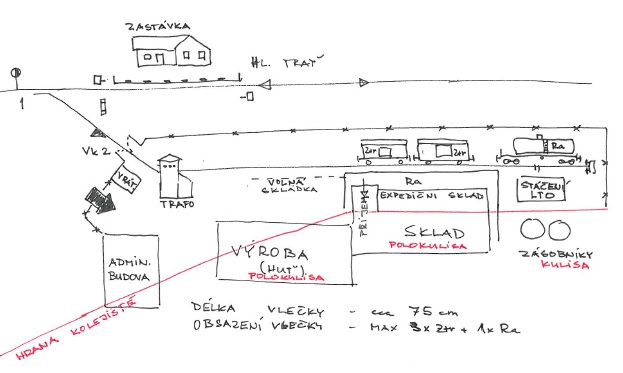 ZASTÁVKA
HL. TRAŤ
1
Vk 2
VRÁT.
TRAFO
VOLNÁ
SKLÁDKA
Ztr
Ztr
Ra
Ra
PŘÍJEM
EXPEDIČNÍ SKLAD
STÁČENÍ
LTO
SKLAD
POLOKULISA
VÝROBA
(HUŤ)
POLOKULISA
ZÁSOBNÍKY
KULISA
ADMIN.
BUDOVA
HRANA KOLEJIŠTĚ
DÉLKA VLEČKY - cca 75 cm
OBSAZENÍ VLEČKY - MAX 3x Ztr + 1x Ra